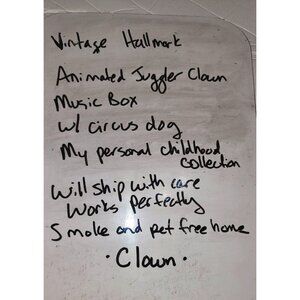 Vintage Hallmark
Animated Juggler Clown
Music Box
w/ circus dog
My personal childhood
collection
Will ship with care
Works perfectly
Smoke and pet free home
· Clown ·